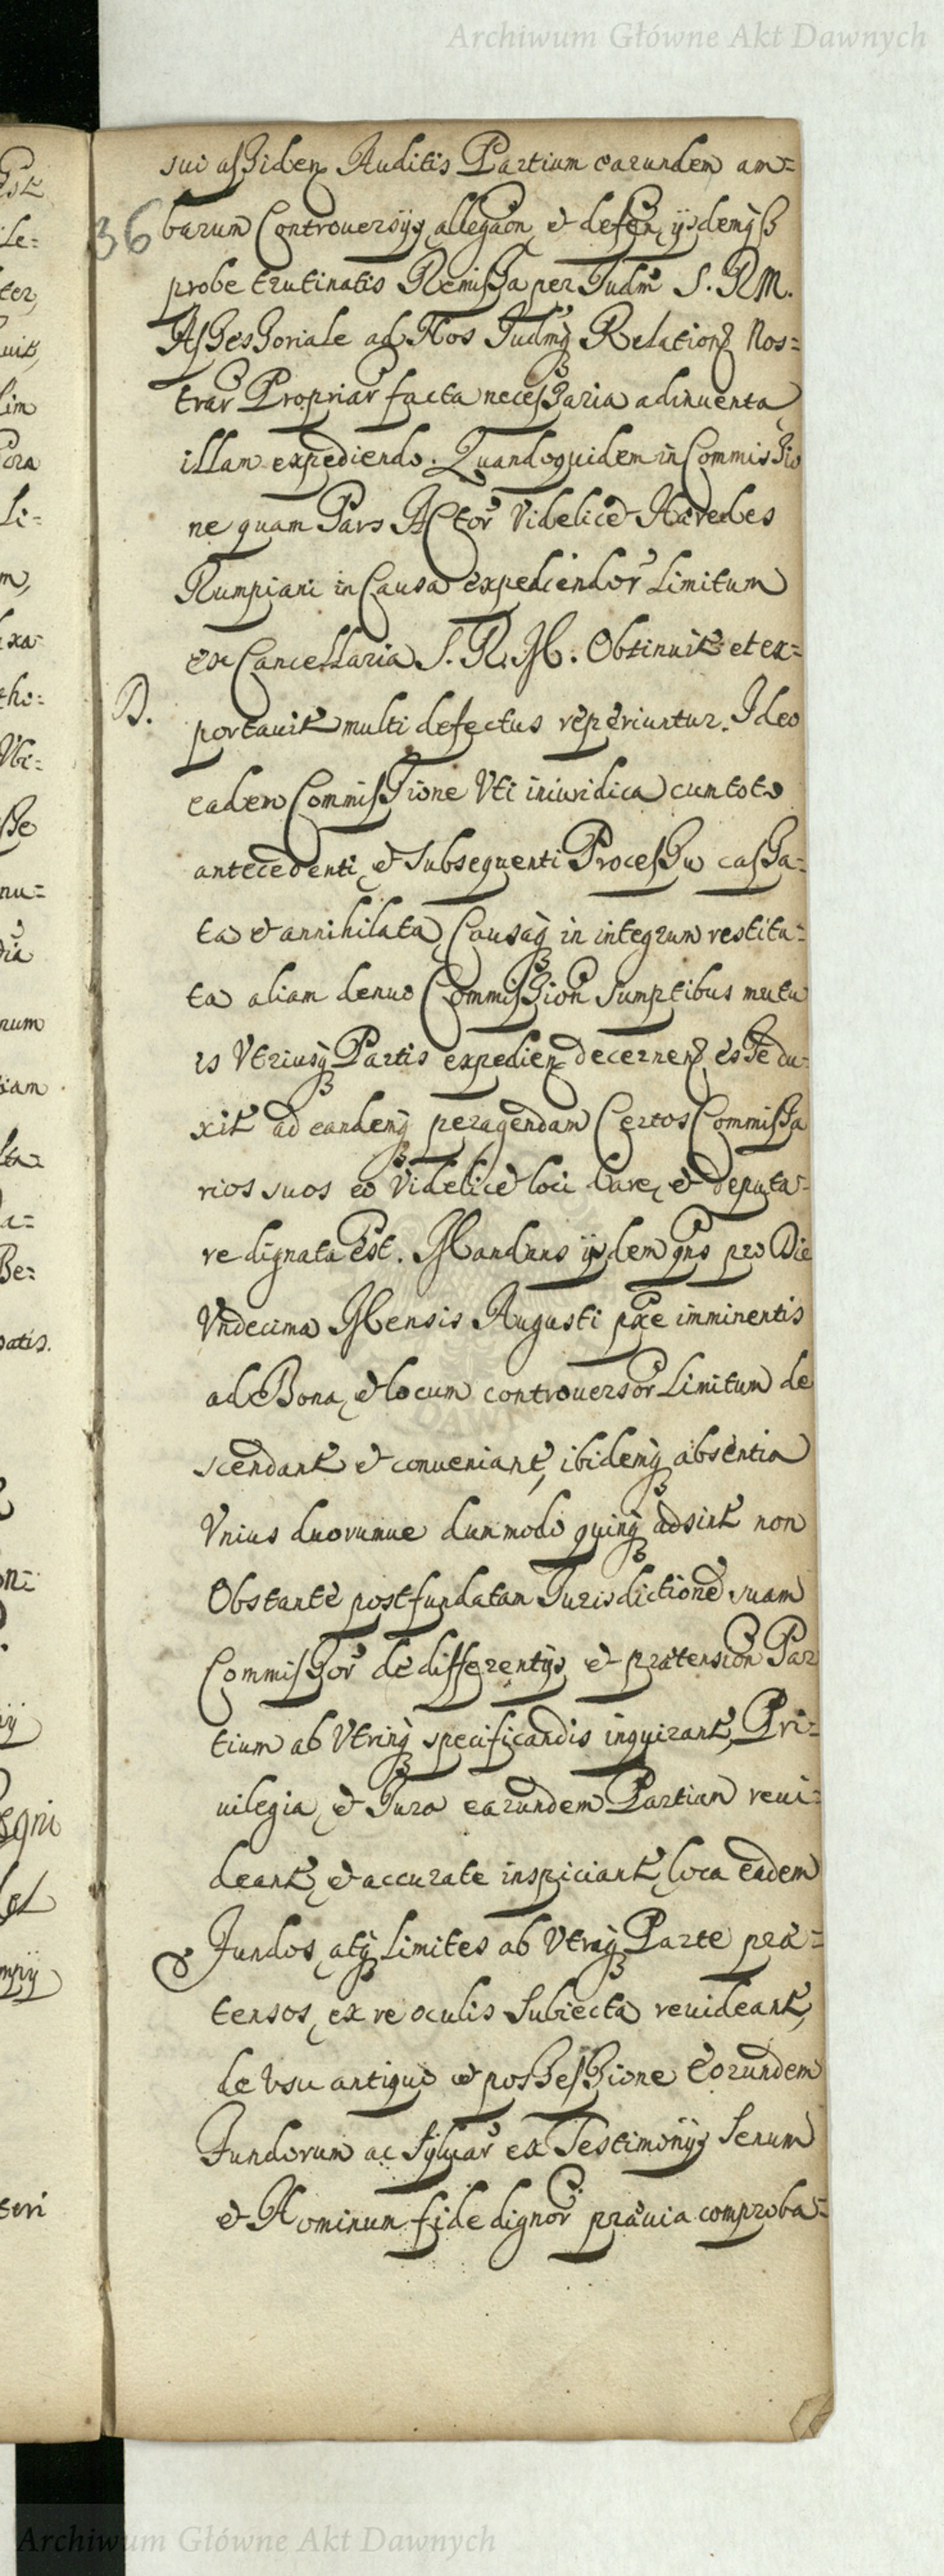 Archiwum Główne Akt Dawnych
sui assiden Auditis Partium earundem am=
36
barum Controversijs allegaon et defen ijsdemq
probe trutinatis Remissa per Judm S. R M.
Assessoriale ad Nos Judmq Relation Nos=
trar Propriar facta necessaria adinuenta
illam expediendo. Quandoquidem in Commissio
ne quam Pars Actor Videlicet Haeredes
Rumpiani in Causa expediendor Limitum
ex Cancellaria S. R. M. Obtinuit et ex=
D.
portauit multi defectus reperiuntur. Ideo
eadem Commissione Vti iniuridica cum toto
antecedenti et subsequenti Processu cassa=
ta et annihilata Causaq in integrum restitu=
ta aliam denuo Commission sumptibus mutu
is Vtriusq Partis expedien decernen esse du=
xit ad eandemq peragendam Certos Commissa
rios suos eo Videlicet loci dare et deputa=
re dignata Est. Mandans ijsdem qns pro Die
Vndecima Mensis Augusti pxe imminentis
ad Bona et locum controuersor Limitum de
scendant et conueniant, ibidemq absentia
Vnius duorumue dummodo quinq adsint non
Obstante post fundatam Jurisdictione suam
Commissor de differentijs et praetension Par
tium ab Vtrinq specificandis inquirant, Pri=
uilegia et Jura earundem Partium reui=
deant et accurate inspiciant, loca eadem
& Fundos atq Limites ab Vtraq Parte prae=
tensos ex re oculis subiecta reuideant,
de Vsu antiquo et possessione Eorundem
Fundorum ac Syluar ex Testimonijs Senum
et Hominum fide dignor praeuia comproba=
Archiwum Główne Akt Dawnych